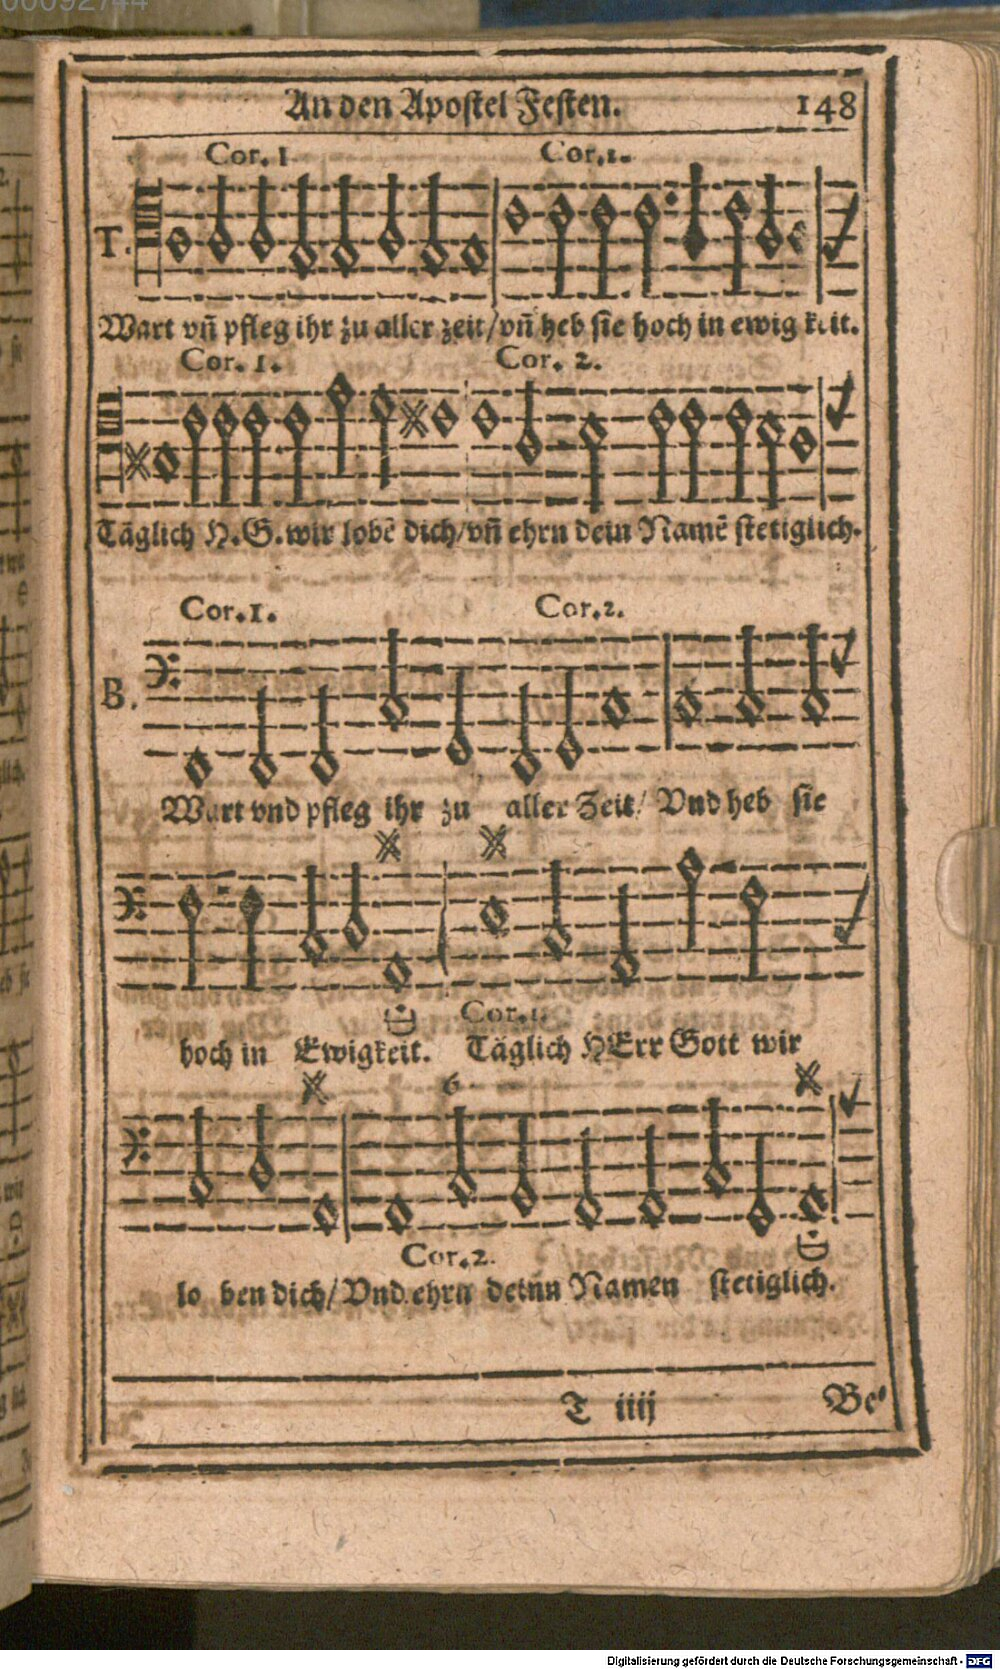 00092744
An den Apostel Festen. 148
Cor. 1 Cor. 1.
T.
Wart vñ pfleg ihr zu aller zeit/vñ heb sie hoch in ewig keit.
Cor. 1. Cor. 2.
Täglich H. G. wir lobẽ dich/vñ ehrn dein Namẽ stetiglich.
Cor. 1. Cor. 2.
B.
Wart vnd pfleg ihr zu aller Zeit/ Vnd heb sie
Cor. 1.
hoch in Ewigkeit. Täglich HErr Gott wir
6
Cor. 2.
lo ben dich/ Vnd ehrn deinn Namen stetiglich.
T iiij Be⸗
Digitalisierung gefördert durch die Deutsche Forschungsgemeinschaft - DFG